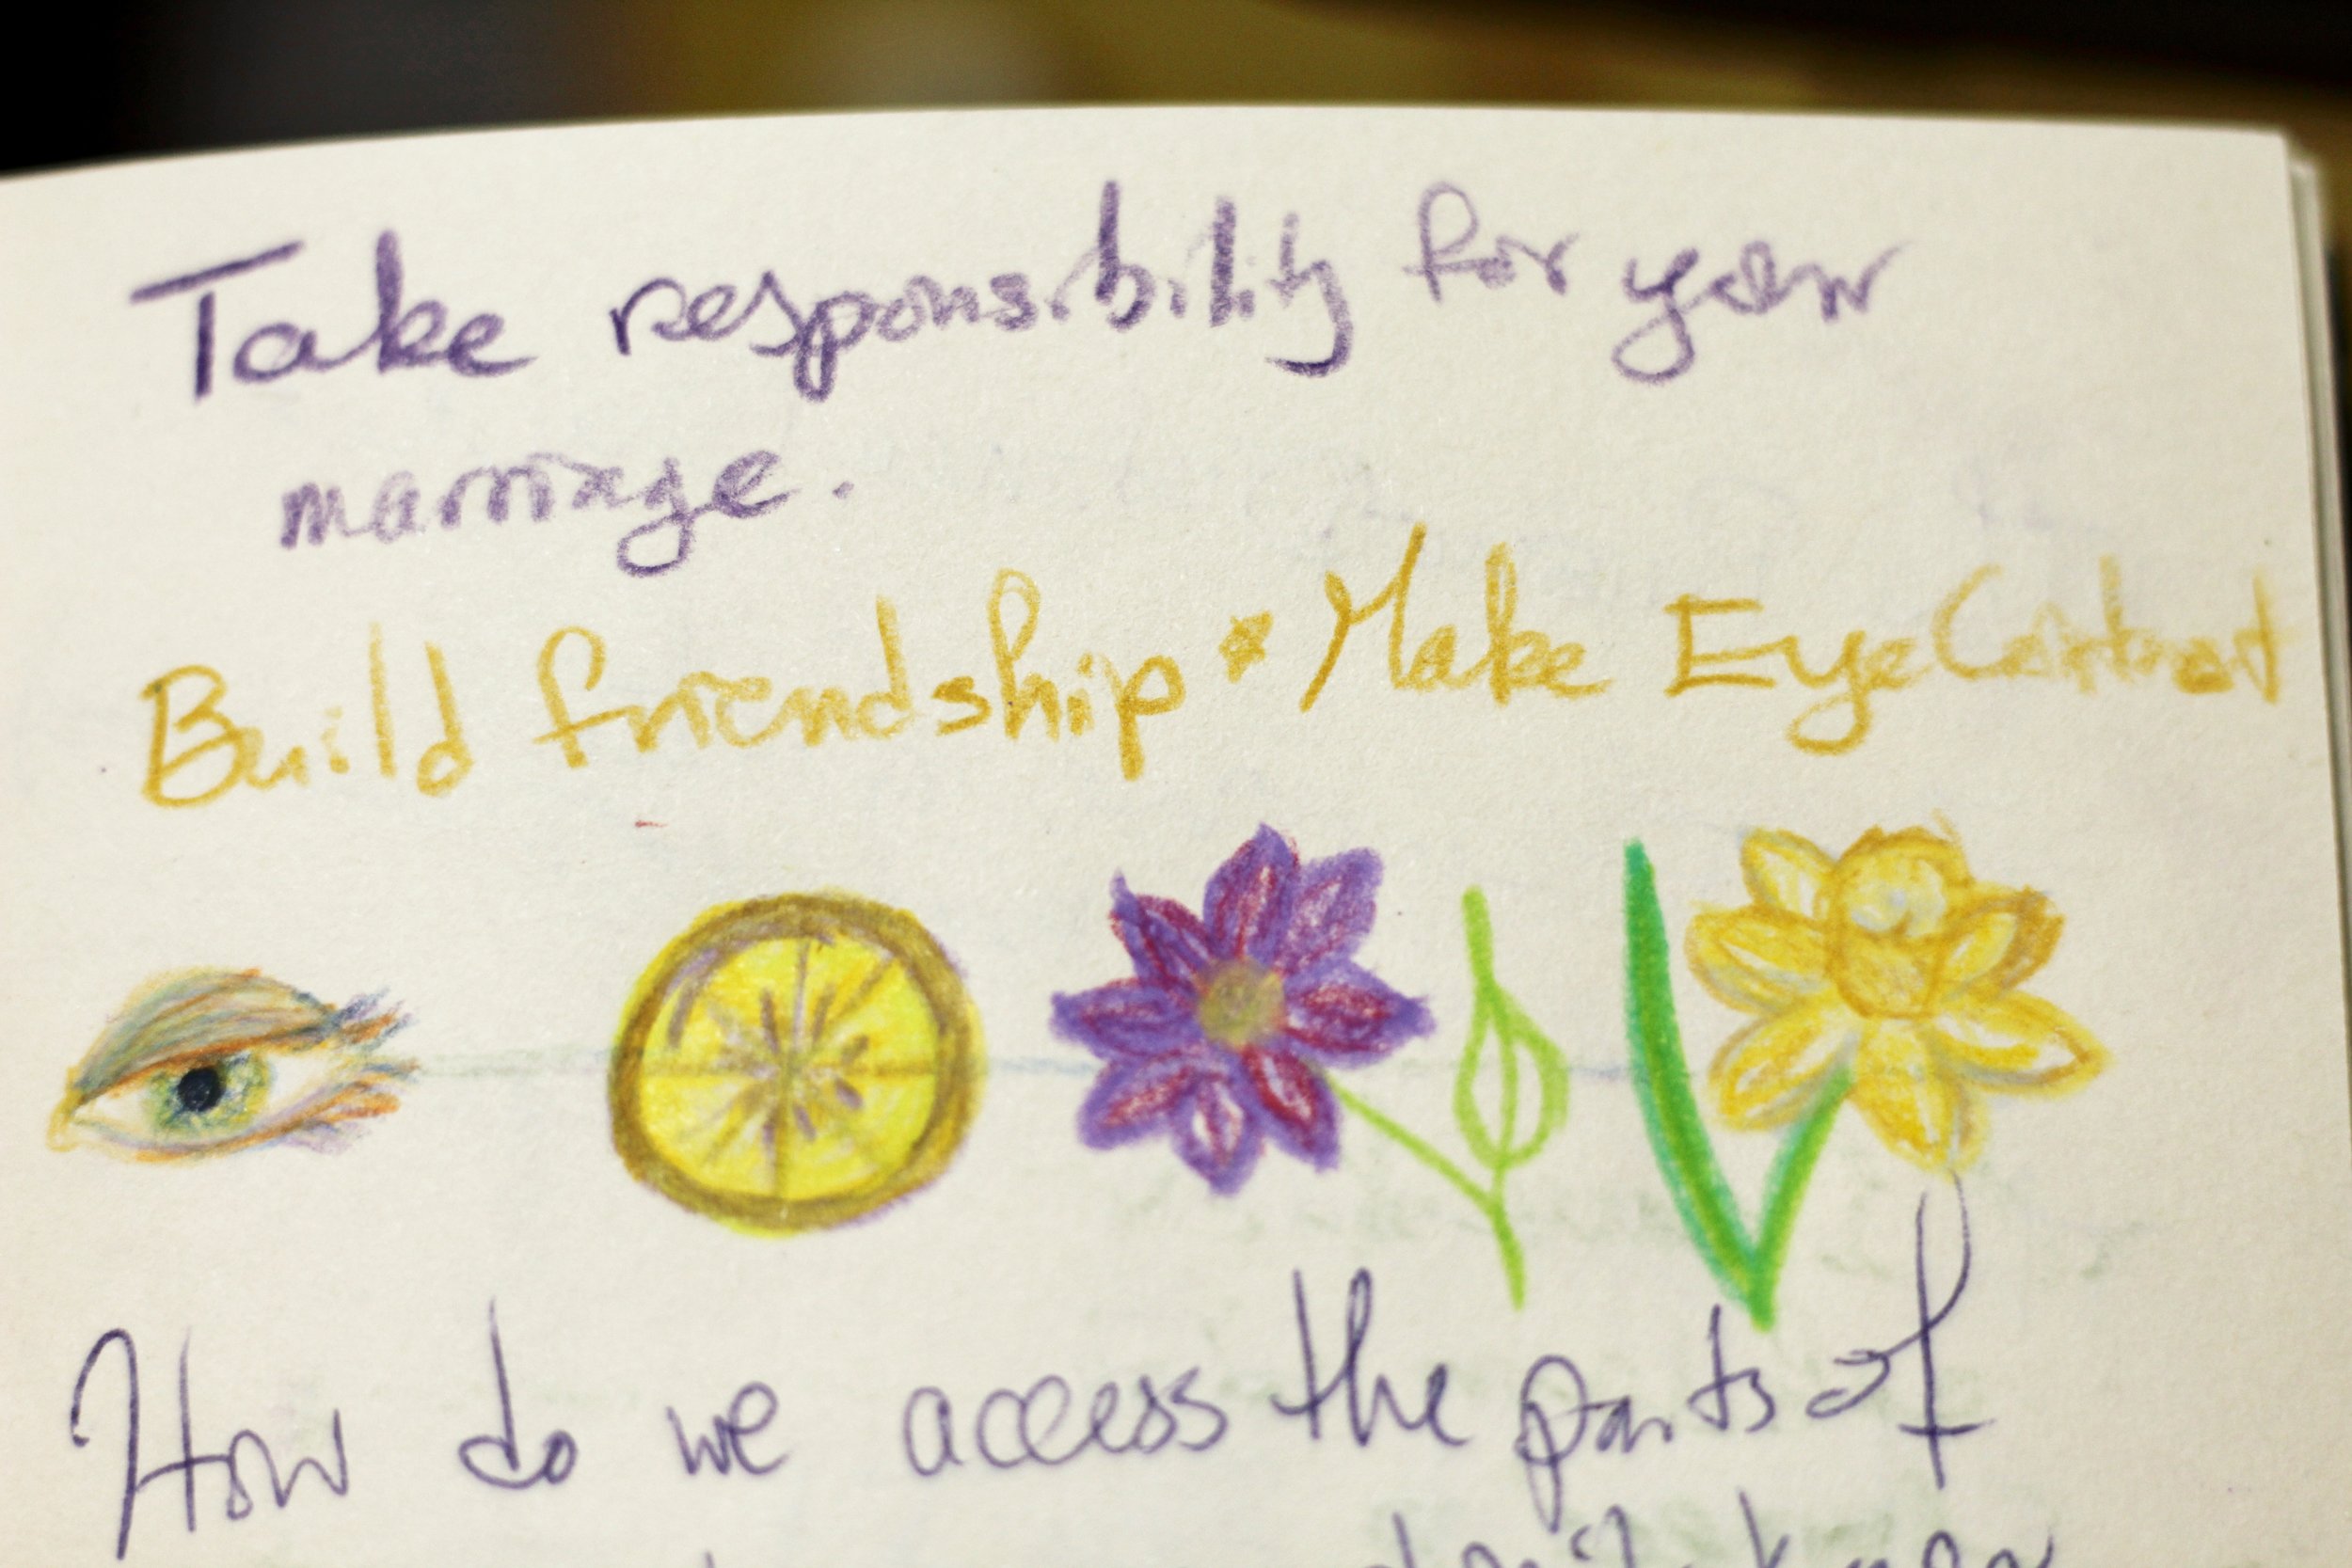 Take responsibility for your
marriage.
Build friendship * Make Eye Contact
How do we access the parts of
don't know